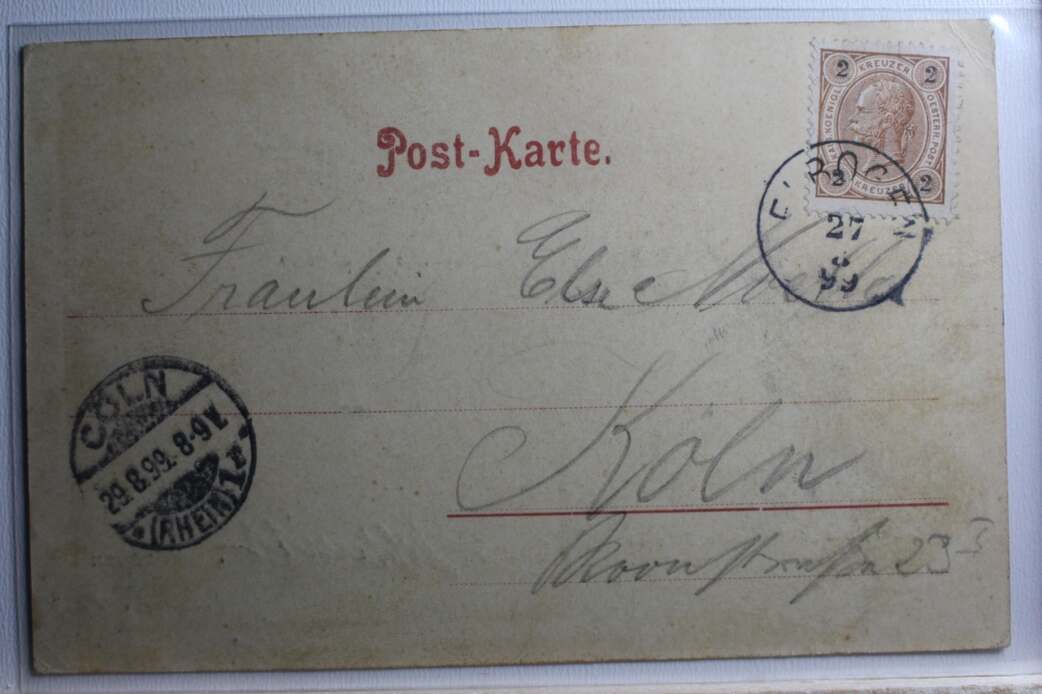 Post-Karte.
2 KREUZER 2
KAIS. KOENIGL. OESTERR. POST
2 KREUZER 2
ELBOGEN
27
8
99
Fräulein Else
CÖLN
29.8.99. 8-9 V.
*(RHEIN) 1 a*
Köln
Roonstraße 23 I